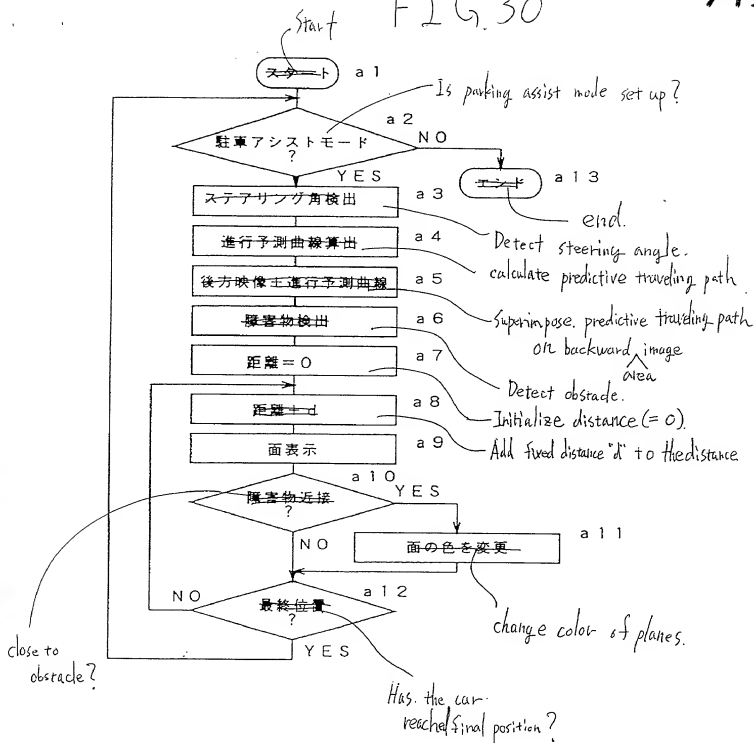 FIG.30
Start
スタート a1
Is parking assist mode set up?
a2
駐車アシストモード
?
NO
YES
エンド a13
end.
ステアリング角検出 a3
Detect steering angle.
進行予測曲線算出 a4
calculate predictive traveling path
後方映像+進行予測曲線 a5
Superimpose predictive traveling path
on backward image
area
障害物検出 a6
Detect obstacle.
距離=0 a7
Initialize distance (= 0).
距離+d a8
Add fixed distance "d" to the distance
面表示 a9
a10
障害物近接
?
YES
NO
close to
obstacle?
面の色を変更 a11
change color of planes.
a12
最終位置
?
NO
YES
Has the car
reached final position?